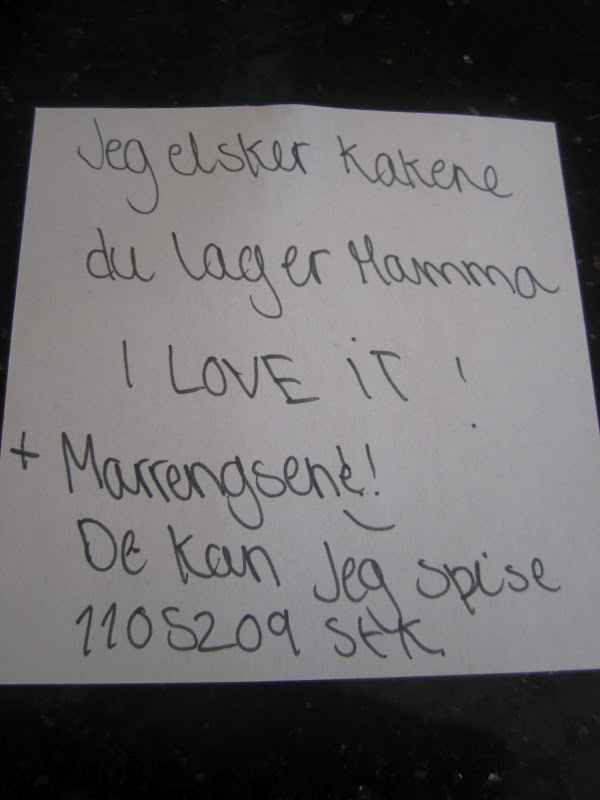 Jeg elsker kakene
du lager Mamma
I LOVE iT !
+ Marrengsene!
De kan Jeg spise
1105209 stk.